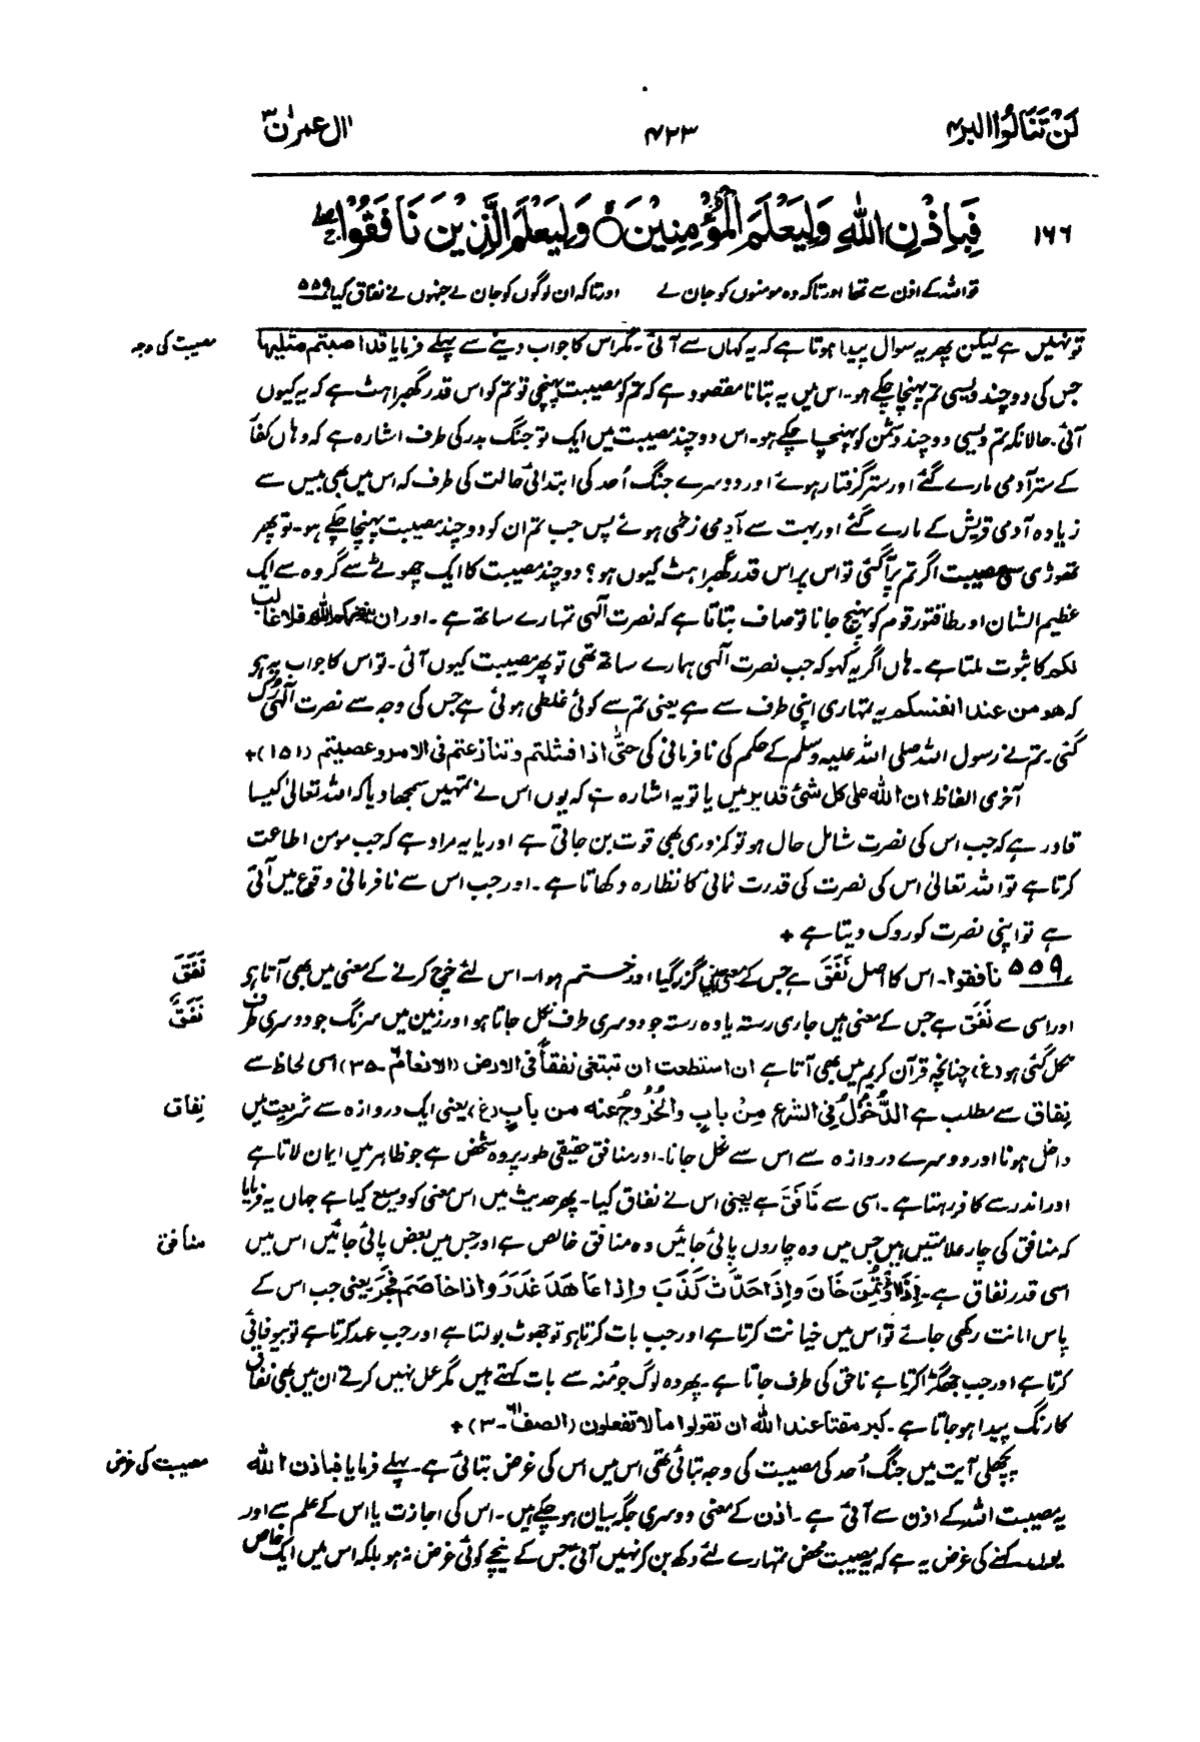 لَنْ تَنَالُوا البر ۴
۴۲۳
اٰل عمرٰن ۳
۱۶۶ فَبِاِذْنِ اللّٰهِ وَلِيَعْلَمَ الْمُؤْمِنِيْنَ ۝ وَلِيَعْلَمَ الَّذِيْنَ نَافَقُوْا
تو اللہ کے اذن سے تھا اور تاکہ وہ مومنوں کو جان لے اور تاکہ ان لوگوں کو جان لے جنہوں نے نفاق کیا ۵۵۹
مصیبت کی وجہ
تو نہیں ہے لیکن پھر یہ سوال پیدا ہوتا ہے کہ یہ کہاں سے آئی۔ مگر اس کا جواب دینے سے پہلے فرمایا قد اصبتم مثلیها
جس کی دو چند ویسی تم پہنچا چکے ہو۔ اس میں یہ بتانا مقصود ہے کہ تم کو مصیبت پہنچی تو تم کو اس قدر گھبراہٹ ہے کہ یہ کیوں
آئی۔ حالانکہ تم ویسی دو چند دشمن کو پہنچا چکے ہو۔ اس دو چند مصیبت میں ایک تو جنگ بدر کی طرف اشارہ ہے کہ وہاں کفار
کے ستر آدمی مارے گئے اور ستر گرفتار ہوئے اور دوسرے جنگ اُحد کی ابتدائی حالت کی طرف کہ اس میں بھی بیس سے
زیادہ آدمی قریش کے مارے گئے اور بہت سے آدمی زخمی ہوئے پس جب تم ان کو دو چند مصیبت پہنچا چکے ہو۔ تو پھر
تھوڑی سی مصیبت اگر تم پر آ گئی تو اس پر اس قدر گھبراہٹ کیوں ہو؟ دو چند مصیبت کا ایک چھوٹے سے گروہ سے ایک
عظیم الشان اور طاقتور قوم کو پہنچ جانا تو صاف بتاتا ہے کہ نصرت الٰہی تمہارے ساتھ ہے۔ اور ان ینصرکم اللہ فلا غالب
لکم کا ثبوت ملتا ہے۔ ہاں اگر یہ کہو کہ جب نصرت الٰہی ہمارے ساتھ تھی تو پھر مصیبت کیوں آئی۔ تو اس کا جواب یہ ہو
کہ هو من عند انفسکم یہ تمہاری اپنی طرف سے ہے یعنی تم سے کوئی غلطی ہوئی ہے جس کی وجہ سے نصرت الٰہی رک
گئی۔ تم نے رسول اللہ صلی اللہ علیہ وسلم کے حکم کی نافرمانی کی حتٰی اذا فشلتم و تنازعتم فی الامر و عصیتم (۱۵۱)+
آخری الفاظ ان اللہ علی کل شئ قدیر میں یا تو یہ اشارہ ہے کہ یوں اس نے تمہیں سمجھا دیا کہ اللہ تعالیٰ کیسا
قادر ہے کہ جب اس کی نصرت شامل حال ہو تو کمزوری بھی قوت بن جاتی ہے اور یا یہ مراد ہے کہ جب مومن اطاعت
کرتا ہے تو اللہ تعالیٰ اس کی نصرت کی قدرت نمائی کا نظارہ دکھاتا ہے۔ اور جب اس سے نافرمانی وقوع میں آتی
ہے تو اپنی نصرت کو روک دیتا ہے +
نَفَقَ
۵۵۹ نافقوا۔ اس کا اصل نَفَقَ ہے جس کے معنی ہیں گزر گیا اور ختم ہوا۔ اس لئے خرچ کرنے کے معنی میں بھی آتا ہو
نَفَقٌ
اور اسی سے نَفَق ہے جس کے معنی ہیں جاری رستہ یا وہ رستہ جو دوسری طرف نکل جاتا ہو اور زمین میں سرنگ جو دوسری طرف
نکل گئی ہو (غ) چنانچہ قرآن کریم میں بھی آتا ہے ان استطعت ان تبتغی نفقاً فی الارض (الانعام ۶-۳۵) اسی لحاظ سے
نِفاق
نِفاق سے مطلب ہے الدُّخُوْلُ فِی الشرع مِنْ بابٍ والخُرُوجُ عنه من بابٍ (غ) یعنی ایک دروازہ سے شریعت میں
داخل ہونا اور دوسرے دروازہ سے اس سے نکل جانا۔ اور منافق حقیقی طور پر وہ شخص ہے جو ظاہر میں ایمان لاتا ہے
اور اندر سے کافر رہتا ہے۔ اسی سے نَافَقَ ہے یعنی اس نے نفاق کیا۔ پھر حدیث میں اس معنی کو وسیع کیا ہے جہاں یہ فرمایا
منافق
کہ منافق کی چار علامتیں ہیں جس میں وہ چاروں پائی جائیں وہ منافق خالص ہے اور جس میں بعض پائی جائیں اس میں
اسی قدر نفاق ہے۔ اِذَا اؤْتُمِنَ خَانَ وَاِذَا حَدَّثَ کَذَبَ وَاِذَا عَاهَدَ غَدَرَ وَاِذَا خَاصَمَ فَجَرَ یعنی جب اس کے
پاس امانت رکھی جائے تو اس میں خیانت کرتا ہے اور جب بات کرتا ہو تو جھوٹ بولتا ہے اور جب عہد کرتا ہے تو بیوفائی
کرتا ہے اور جب جھگڑا کرتا ہے ناحق کی طرف جاتا ہے۔ پھر وہ لوگ جو مُنہ سے بات کہتے ہیں مگر عمل نہیں کرتے ان میں بھی نفاق
کا رنگ پیدا ہو جاتا ہے۔ کبر مقتا عند اللہ ان تقولوا ما لا تفعلون (الصف ۶۱-۳) +
مصیبت کی غرض
پچھلی آیت میں جنگ اُحد کی مصیبت کی وجہ بتائی تھی اس میں اس کی غرض بتائی ہے۔ پہلے فرمایا فباذن اللہ
یہ مصیبت اللہ کے اذن سے آئی ہے۔ اذن کے معنی دوسری جگہ بیان ہو چکے ہیں۔ اس کی اجازت یا اس کے علم سے اور
یوں کہنے کی غرض یہ ہے کہ یہ مصیبت محض تمہارے لئے دکھ بن کر نہیں آئی جس کے نیچے کوئی غرض نہ ہو بلکہ اس میں ایک خاص